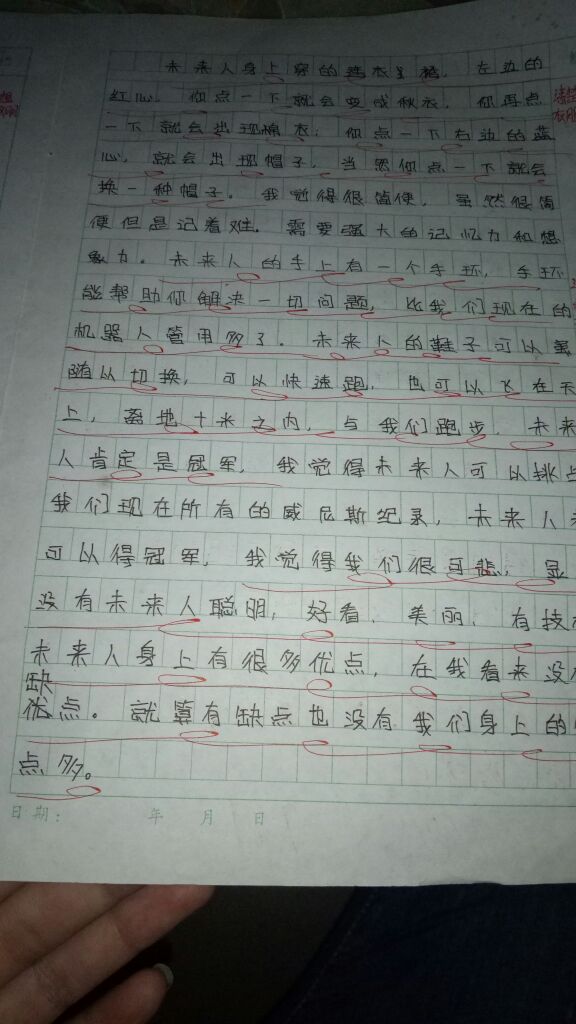 未来人身上穿的连衣裙，左边的
红心，你点一下就会变成秋衣，你再点
一下就会出现棉衣；你点一下右边的蓝
心，就会出现帽子，当然你点一下就会
换一种帽子。我觉得很简便，虽然很简
便但是记着难。需要强大的记忆力和想
象力。未来人的手上有一个手环，手环
能帮助你解决一切问题，比我们现在的
机器人管用多了。未来人的鞋子可以
随以切换，可以快速跑，也可以飞在天
上，离地十米之内，与我们跑步，未来
人肯定是冠军，我觉得未来人可以挑
我们现在所有的威尼斯纪录，未来人
可以得冠军，我觉得我们很可悲，显
没有未来人聪明，好看、美丽、有技
未来人身上有很多优点，在我看来没
缺
优点。就算有缺点也没有我们身上的
点多。
日期： 年 月 日